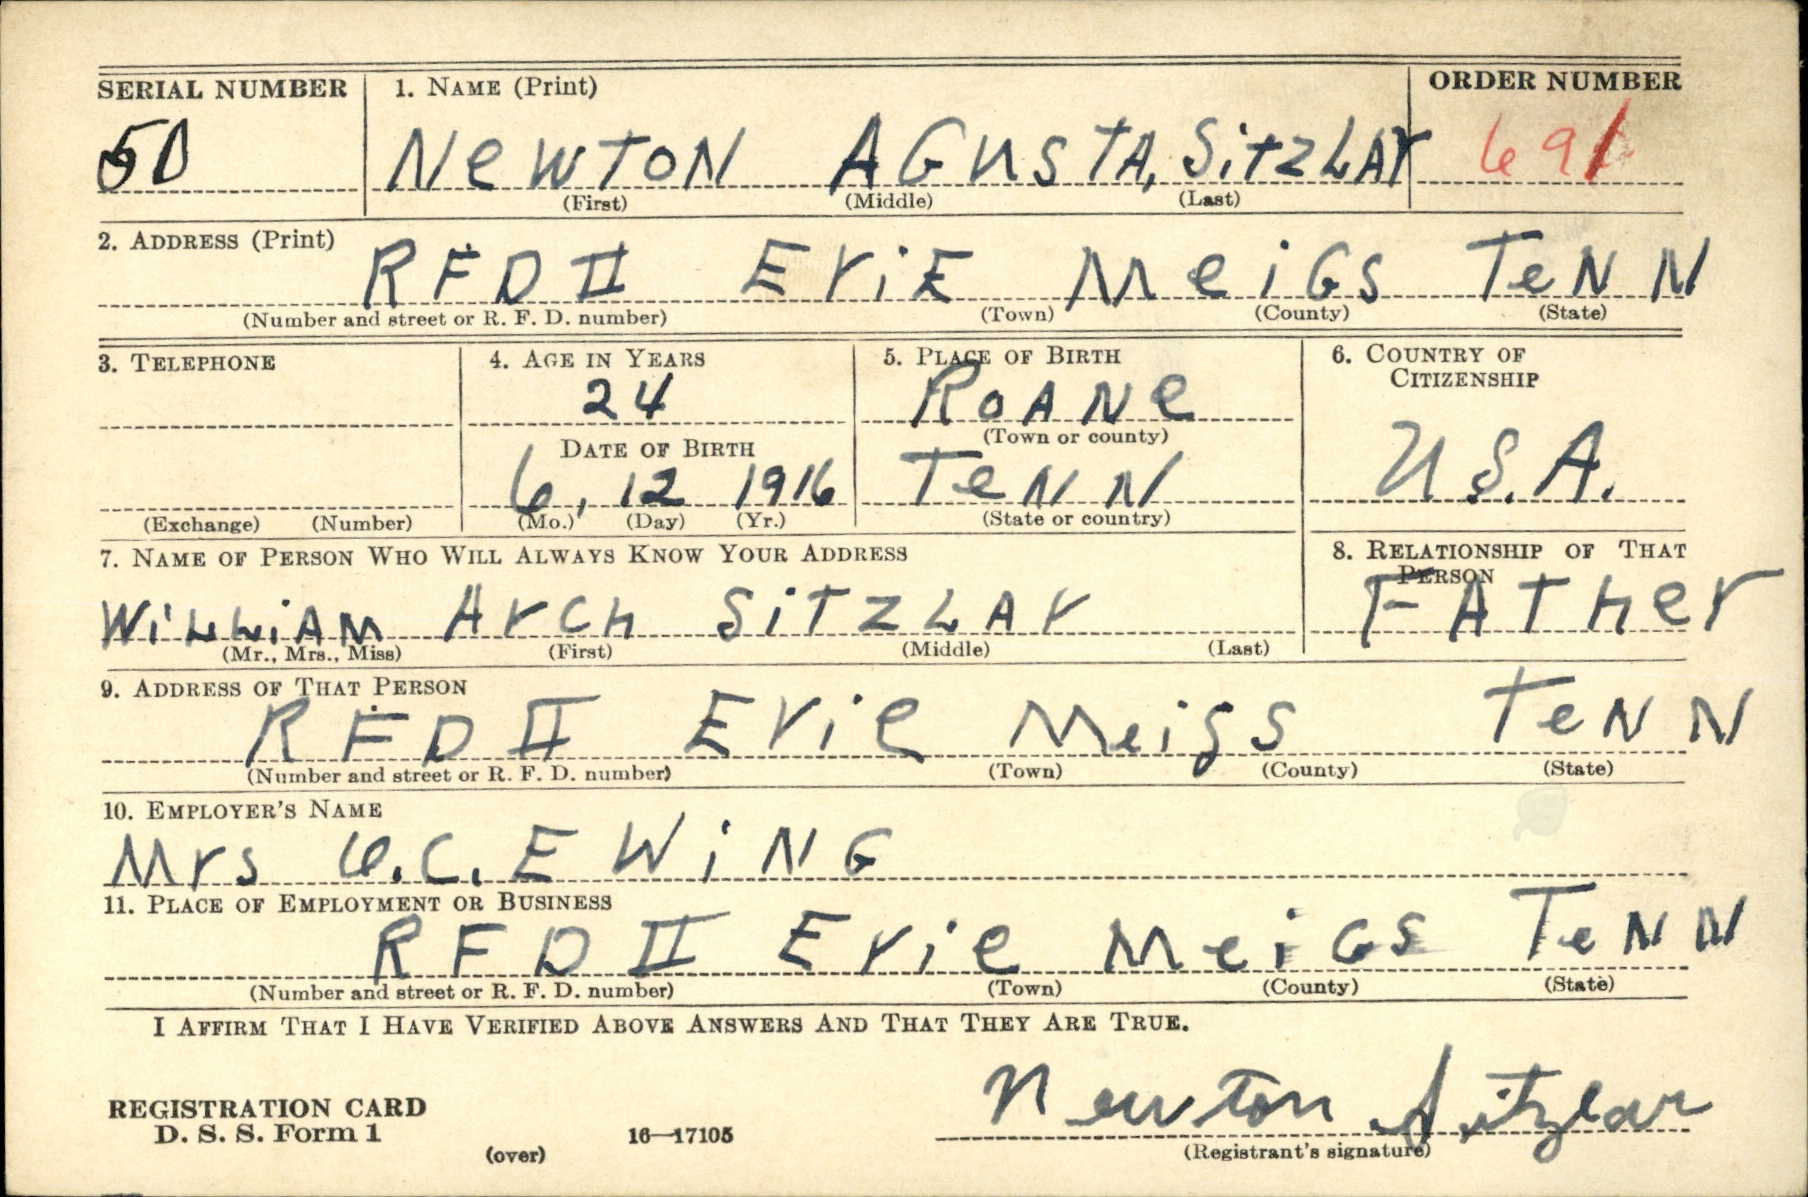 SERIAL NUMBER 1. NAME (Print) ORDER NUMBER
50 NeWToN AGusTA, SiTZLAr 691
(First) (Middle) (Last)
2. ADDRESS (Print)
RFD II EriE MeiGs TeNN
(Number and street or R. F. D. number) (Town) (County) (State)
3. TELEPHONE 4. AGE IN YEARS 5. PLACE OF BIRTH 6. COUNTRY OF CITIZENSHIP
24 RoANe
DATE OF BIRTH (Town or county)
6, 12 1916 TeNN U.S.A.
(Exchange) (Number) (Mo.) (Day) (Yr.) (State or country)
7. NAME OF PERSON WHO WILL ALWAYS KNOW YOUR ADDRESS 8. RELATIONSHIP OF THAT PERSON
WiLLiAM Arch SiTZLAr FATher
(Mr., Mrs., Miss) (First) (Middle) (Last)
9. ADDRESS OF THAT PERSON
RFD II Erie Meigs TeNN
(Number and street or R. F. D. number) (Town) (County) (State)
10. EMPLOYER'S NAME
Mrs C. EWiNG
11. PLACE OF EMPLOYMENT OR BUSINESS
RFD II Erie MeiGs TeNN
(Number and street or R. F. D. number) (Town) (County) (State)
I AFFIRM THAT I HAVE VERIFIED ABOVE ANSWERS AND THAT THEY ARE TRUE.
Newton Sitzlar
REGISTRATION CARD
D. S. S. Form 1 (over) 16—17105 (Registrant's signature)